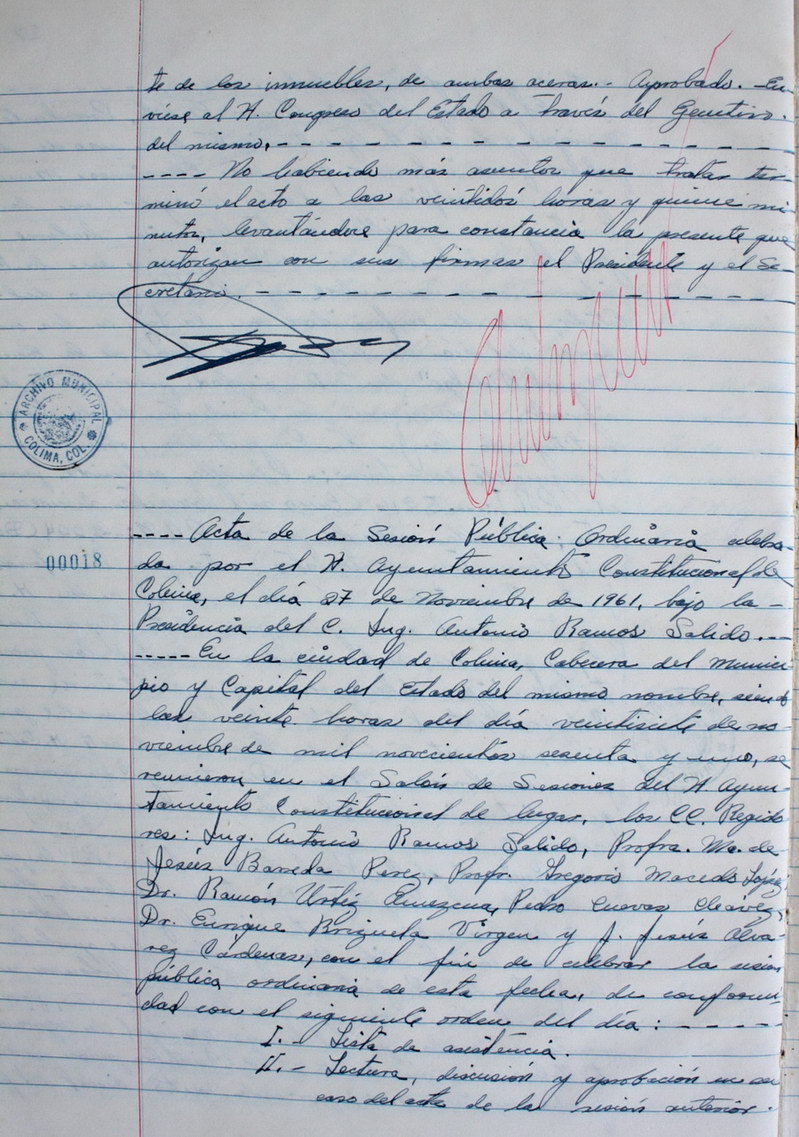 te de los inmuebles, de ambas aceras.- Aprobado.- En-
víese al H. Congreso del Estado a través del Ejecutivo.
del mismo.- - - - - - - - - - - - - - - -
- - - - No habiendo más asuntos que tratar ter-
minó el acto a las veintidós horas y quince mi-
nutos, levantándose para constancia la presente que
autorizan con sus firmas el Presidente y el Se-
cretario. - - - - - - - - - - - - - - - -
ARCHIVO MUNICIPAL
COLIMA, COL.
00018
- - - - Acta de la Sesión Pública Ordinaria celebra-
da por el H. Ayuntamiento Constitucional de
Colima, el día 27 de Noviembre de 1961, bajo la -
Presidencia del C. Ing. Antonio Ramos Salido.- - -
- - - - - En la ciudad de Colima, Cabecera del Munici-
pio y Capital del Estado del mismo nombre, siendo
las veinte horas del día veintisiete de no
viembre de mil novecientos sesenta y uno, se
reunieron en el Salón de Sesiones del H. Ayun-
tamiento Constitucional de lugar, los CC. Regido
res: Ing. Antonio Ramos Salido, Profra. Ma. de
Jesús Barreda Perez, Profr. Gregorio Macedo López
Dr. Ramón Urtiz Amezcua, Pedro Cuevas Chávez,
Dr. Enrique Brizuela Virgen y J. Jesús Alva-
rez Cárdenas, con el fin de celebrar la sesión
pública ordinaria de esta fecha, de conformi-
dad con el siguiente orden del día: - - - - -
I.- Lista de asistencia.
II.- Lectura, discusión y aprobación en su
caso del acta de la sesión anterior.